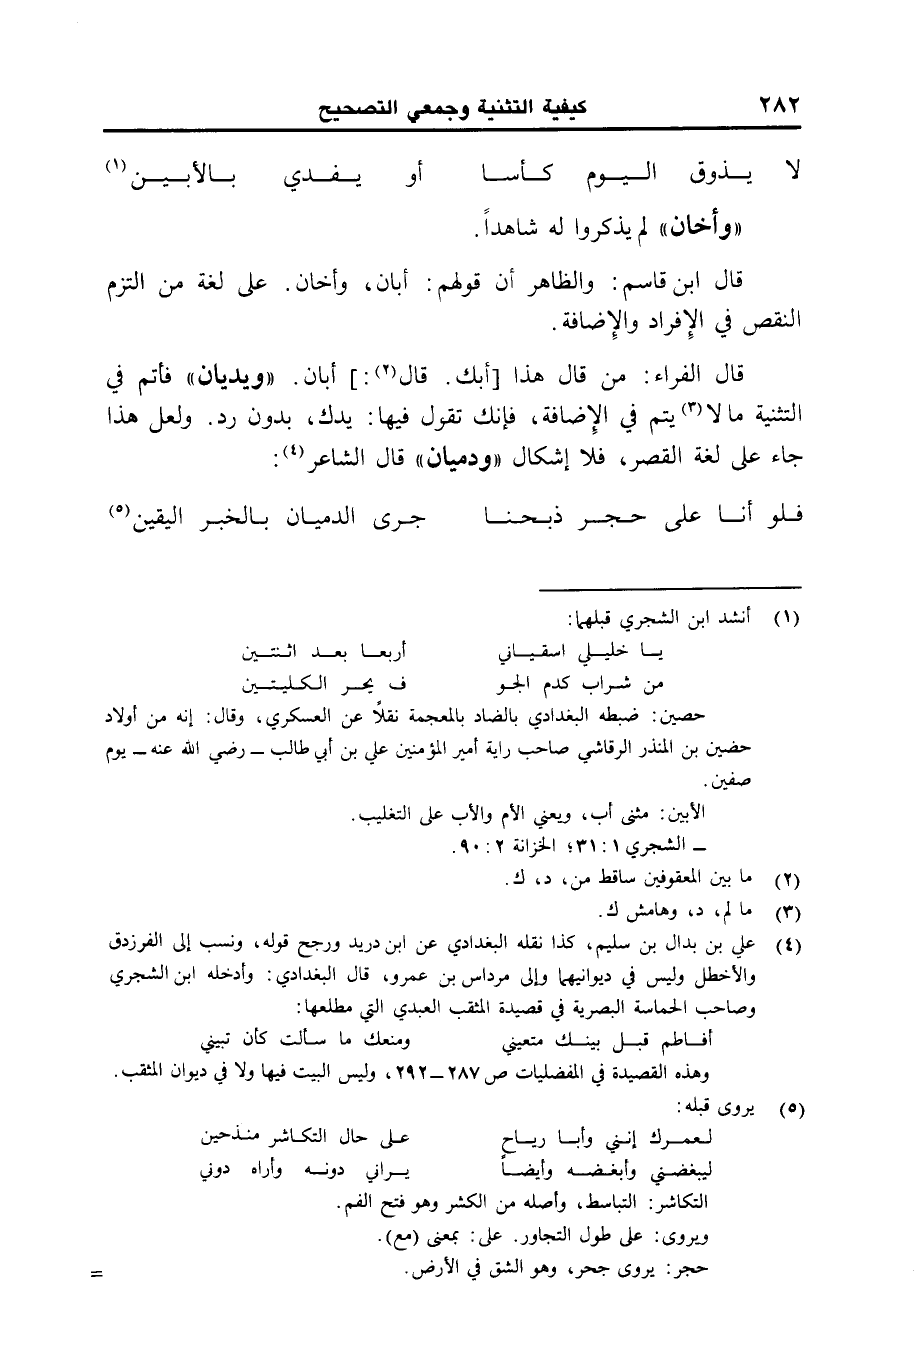 ٢٨٢ كيفية التثنية وجمعي التصحيح
لا يـذوق الـيـوم كـأسـا أو يـفـدي بـالأبـيـن(١)
«وأخان» لم يذكروا له شاهداً.
قال ابن قاسم: والظاهر أن قولهم: أبان، وأخان. على لغة من التزم
النقص في الإفراد والإضافة.
قال الفراء: من قال هذا [أبك. قال(٢):] أبان. «ويديان» فأتم في
التثنية ما لا(٣) يتم في الإضافة، فإنك تقول فيها: يدك، بدون رد. ولعل هذا
جاء على لغة القصر، فلا إشكال «ودميان» قال الشاعر(٤):
فـلو أنـا على حـجـر ذبـحـنـا جـرى الدميـان بـالخبـر اليقين(٥)
(١) أنشد ابن الشجري قبلهما:
يـا خليـلي اسقيـاني أربعـا بعـد اثـنتـين
من شـراب كدم الجـو ف يحـر الـكليـتـين
حصين: ضبطه البغدادي بالضاد بالمعجمة نقلاً عن العسكري، وقال: إنه من أولاد
حضين بن المنذر الرقاشي صاحب راية أمير المؤمنين علي بن أبي طالب ـ رضي الله عنه ـ يوم
صفين.
الأبين: مثنى أب، ويعني الأم والأب على التغليب.
ـ الشجري ١: ٣١؛ الخزانة ٢: ٩٠.
(٢) ما بين المعقوفين ساقط من، د، ك.
(٣) ما لم، د، وهامش ك.
(٤) علي بن بدال بن سليم، كذا نقله البغدادي عن ابن دريد ورجح قوله، ونسب إلى الفرزدق
والأخطل وليس في ديوانيهما وإلى مرداس بن عمرو، قال البغدادي: وأدخله ابن الشجري
وصاحب الحماسة البصرية في قصيدة المثقب العبدي التي مطلعها:
أفـاطم قبـل بينـك متعيني ومنعك ما سـألت كأن تبيني
وهذه القصيدة في المفضليات ص ٢٨٧ـ٢٩٢، وليس البيت فيها ولا في ديوان المثقب.
(٥) يروى قبله:
لـعمـرك إنـني وأبـا ريـاح عـلى حال التكاشر منـذحين
ليبغضـني وأبغـضـه وأيضـاً يـراني دونـه وأراه دوني
التكاشر: التباسط، وأصله من الكشر وهو فتح الفم.
ويروى: على طول التجاور. على: بمعنى (مع).
حجر: يروى جحر، وهو الشق في الأرض. =